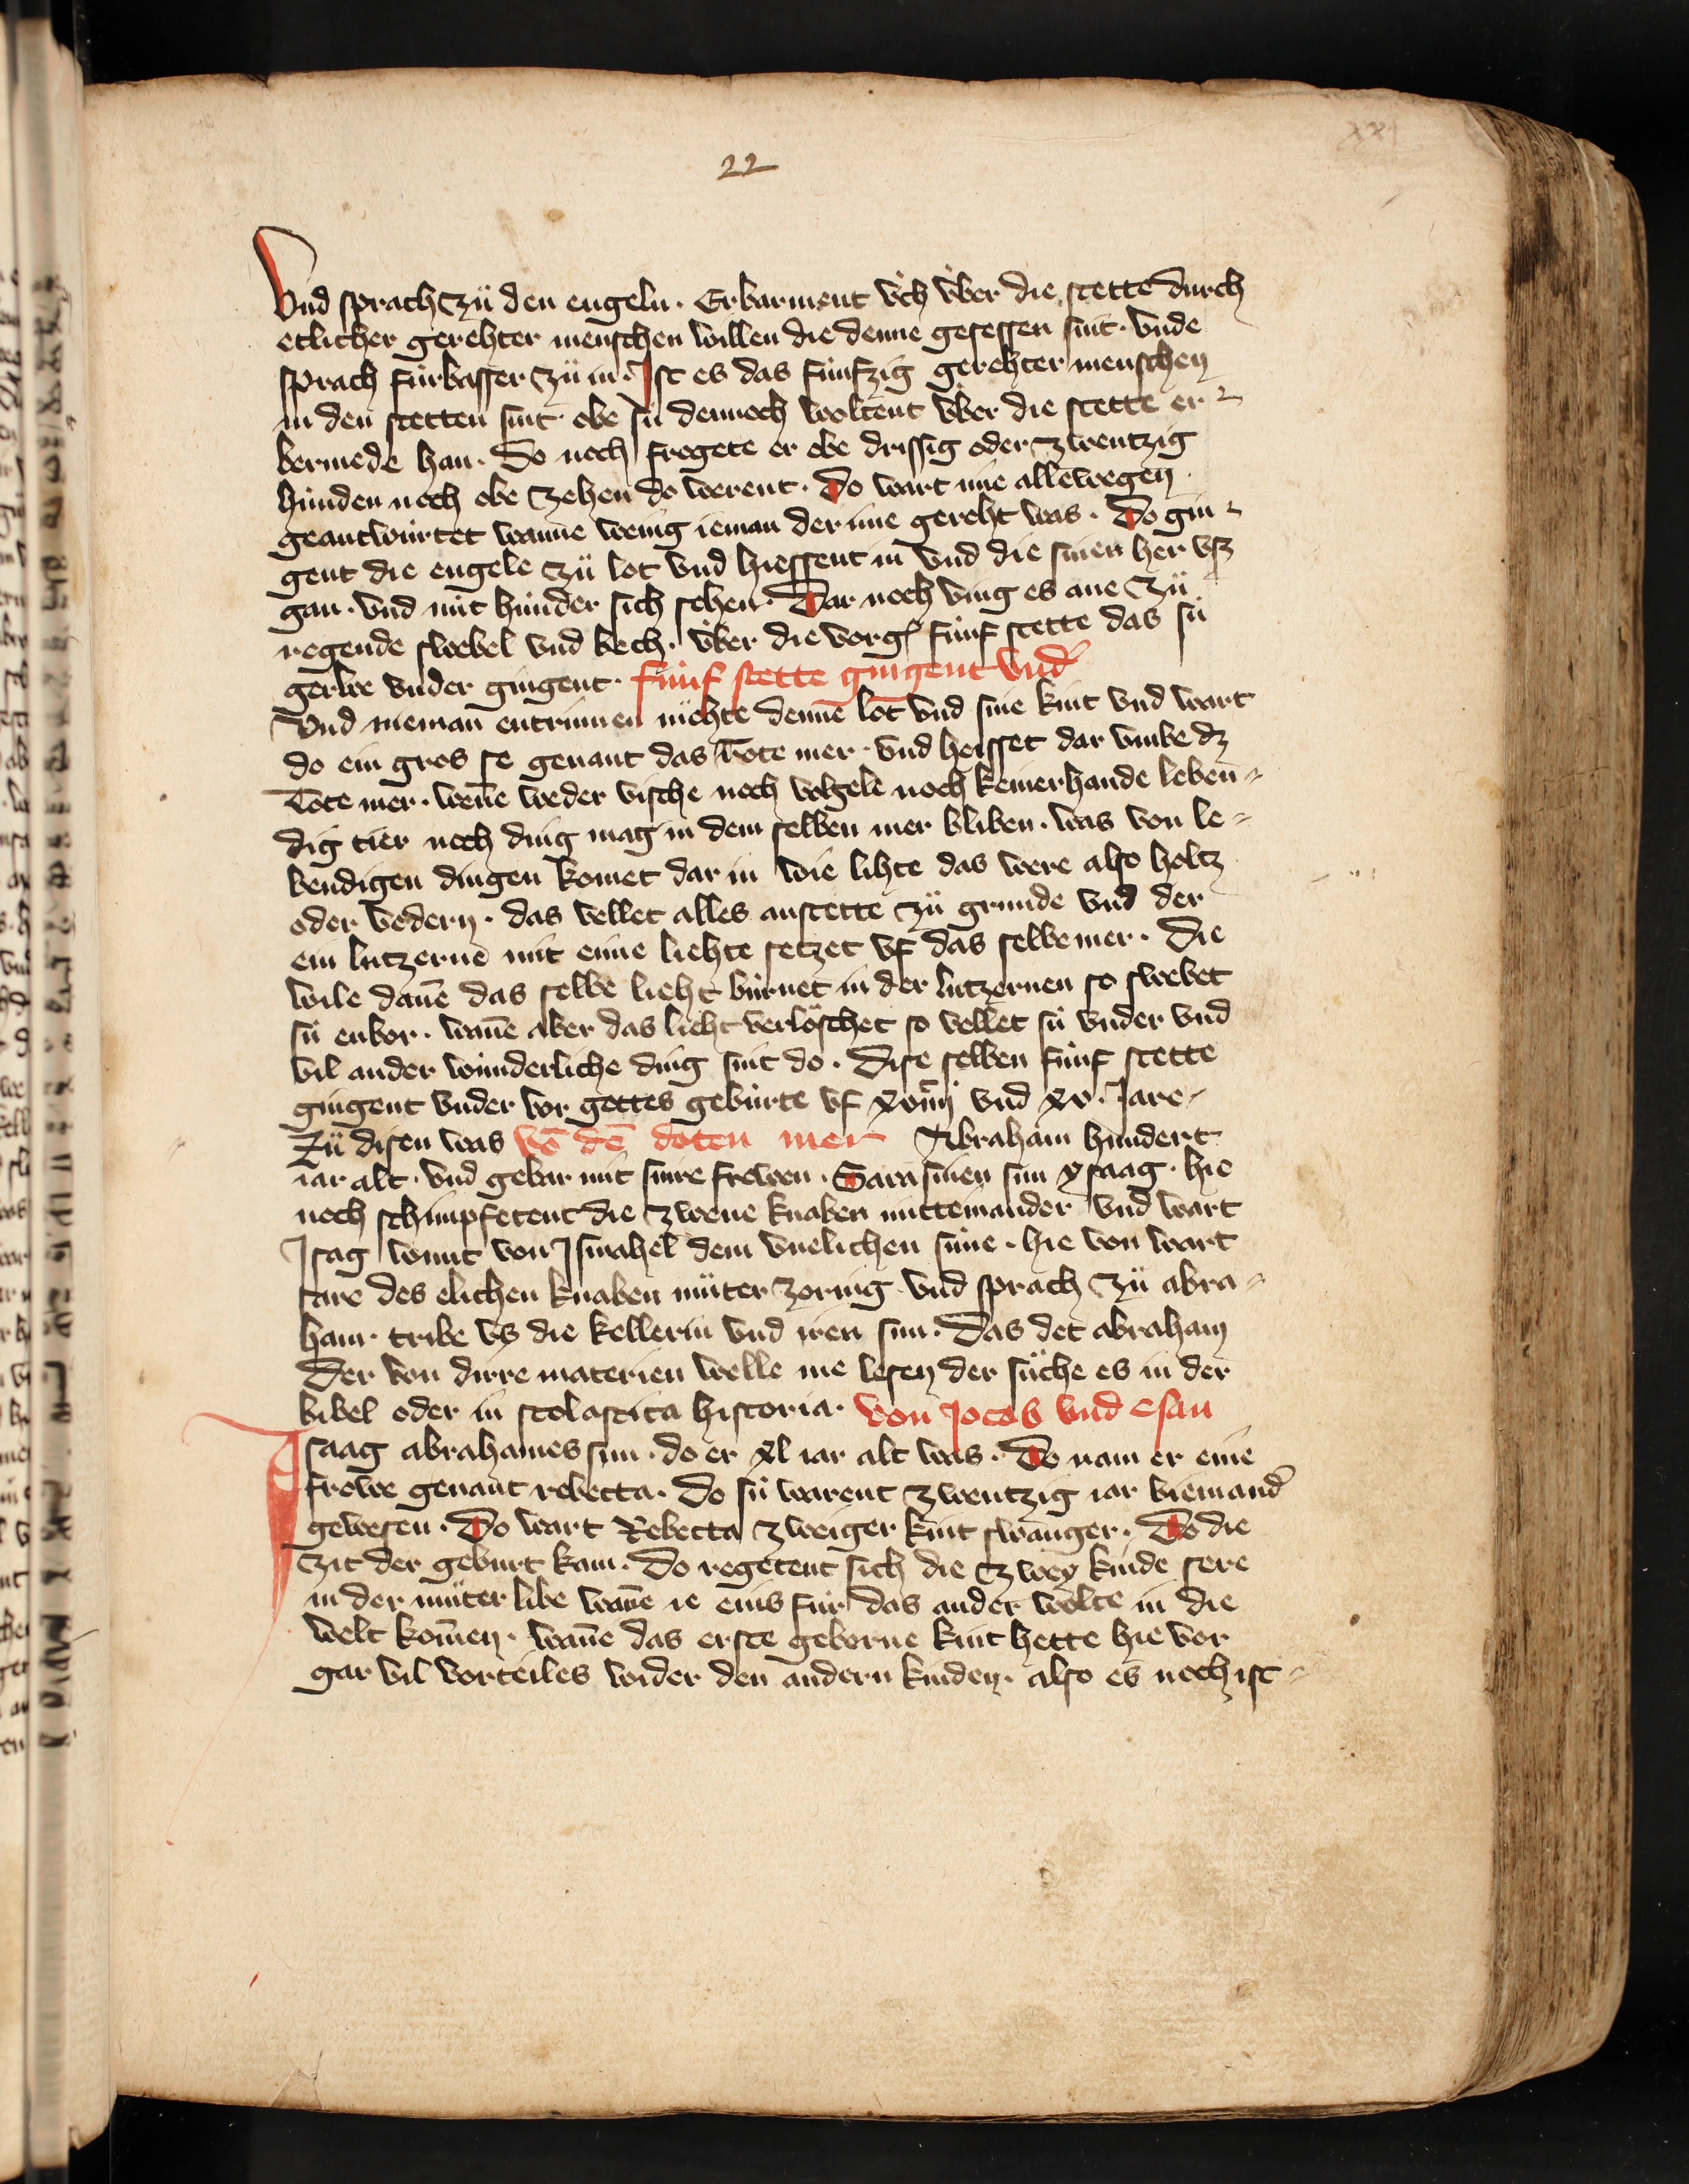 xxj
22
Vnd sprach zü den engeln. Erbarment v́ch v́ber die stette durch
etlicher gerehter menschen willen die denne gesessen sint. vnde
sprach fúrbasser zü in. Ist es das fúnfzig gerehter menschen
in den stetten sint. obe sú dennoch woltent v́ber die stette er⸗
bermede han. Do noch frogete er obe drissig oder zwentzig
húnden noch obe zehen do werent. Do wart ime allewegen
geantwúrtet wanne wenig ieman der inne gereht was. Do gin⸗
gent die engele zü lot vnd hiessent in vnd die sinen her vsz
gan. vnd nút hinder sich sehen. Dar noch ving es ane zü
regende swebel vnd bech. v́ber die vorg fúnf stette das sú
gerwe vnder gingent. fúnf stette gingent vnd̕
Vnd nieman entrinnen möhte denne lot vnd sine kint vnd wart
do ein gros se genant das Tote mer. vnd heisset dar vmbe dz
Tote mer. wene weder vische noch vogele noch keinerhande leben⸗
dig tier noch ding mag in dem selben mer bliben. was von le⸗
bendigen dingen komet dar in wie lihte das were also holtz
oder vedern. das vellet alles anstette zü grunde vnd der
ein lutzerne mit eime liehte setzet vf das selbe mer. Die
wile dan̄e das selbe lieht búrnet in der lutzernen so swebet
sú enbor. wan̄e aber das lieht verlöschet so vellet sú vnder vnd
vil ander wúnderliche ding sint do. Dise selben fúnf stette
gingent vnder vor gottes gebúrte vf xviiijͨ vnd xv. Jare⸗
Zü disen was vō dē doten mer Abraham hundert
iar alt. vnd gebar mit sinre frowen. Sara sinen sun ysaag. hie
noch schimpfetent die zwene knaben mitteinander vnd wart
Isag wunt von Ismahel dem vnelichen súne. hie von wart
sare des elichen knaben müter zornig vnd sprach zü abra⸗
ham. tribe vs die kellerin vnd iren sun. Das det abraham
Der von dirre materien welle me lesen der süche es in der
bibel oder in scolastica historia. von Jocob vnd esau
Isaag abrahames sun. do er xl iar alt was. Do nam er eine
frowe genant rebecca. Do sú warent zwentzig iar biemand̕
gewesen. Do wart Rebecca zweiger kint swanger. Do die
zit der geburt kam. Do regetent sich die zwey kinde sere
in der müter libe wan̄e ie eins fúr das ander wolte in die
welt kom̄en. wan̄e das erste geborne kint hette hie vor
gar vil vorteiles wider den andern kinden. also es noch ist⸗